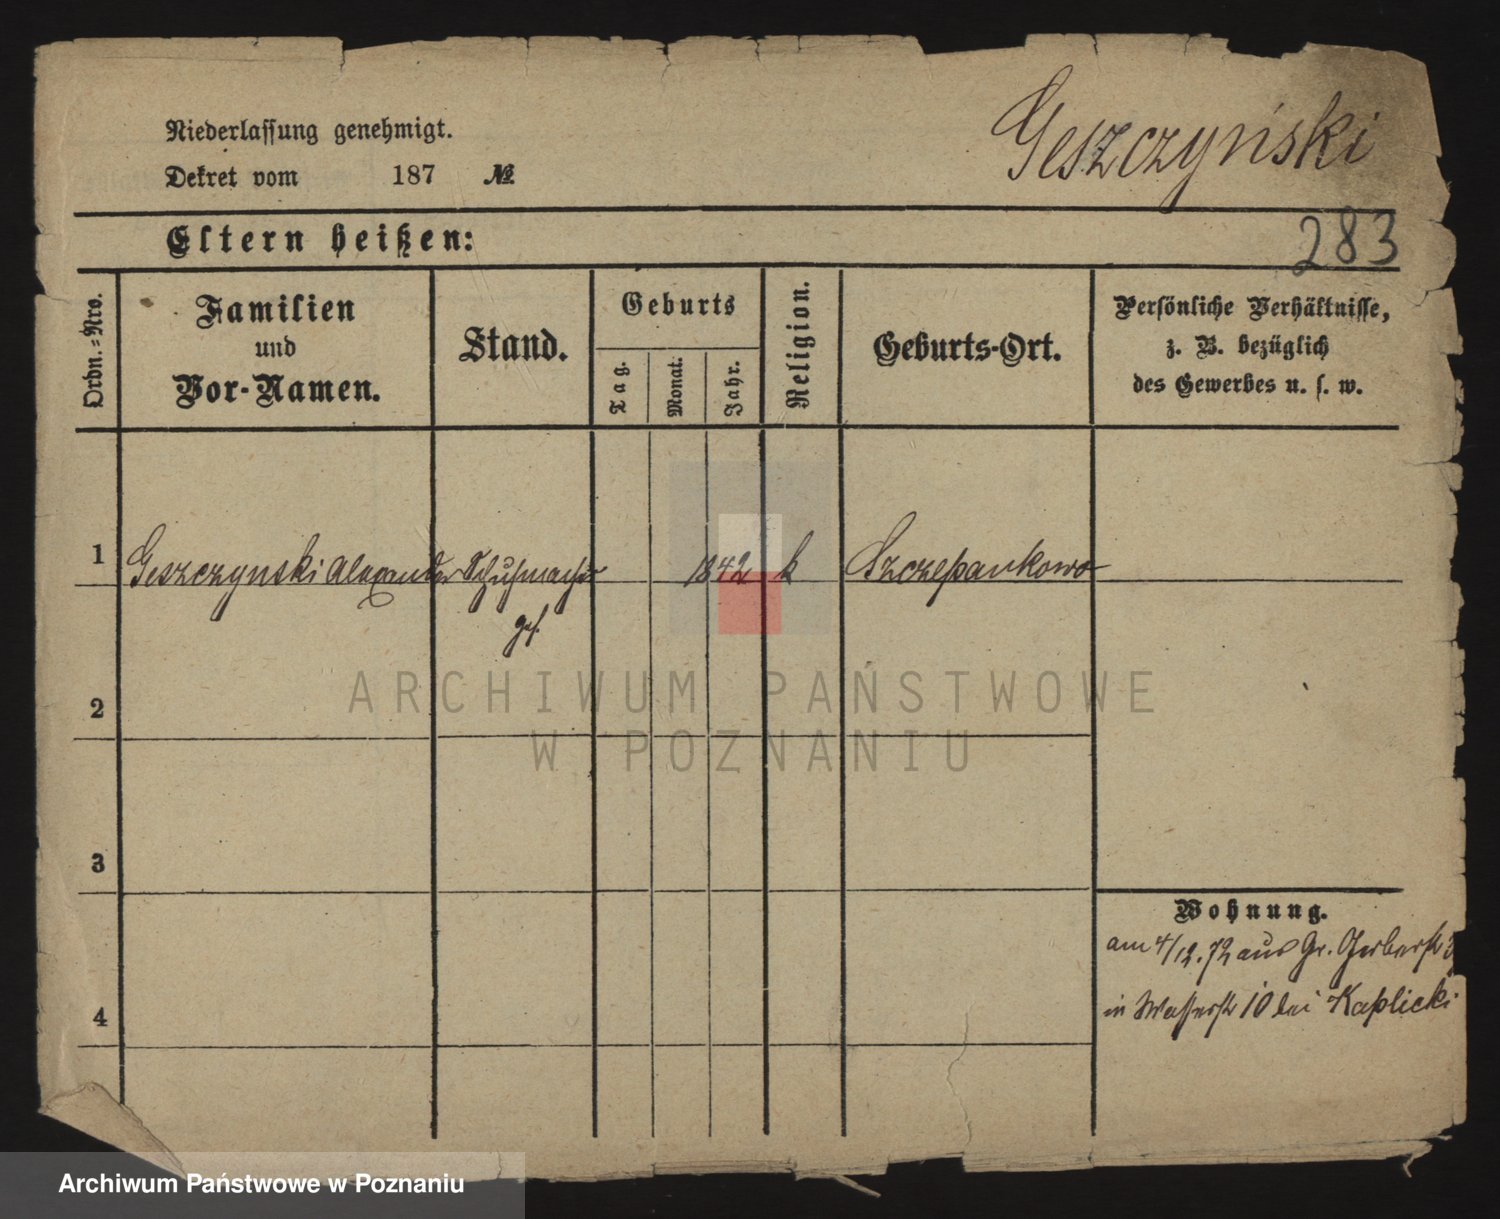 Geszczyński
Niederlassung genehmigt.
Dekret vom 187 №
283
Eltern heißen:
Ordn.-Nro.
Familien
und
Vor-Namen.
Stand.
Geburts
Tag.
Monat.
Jahr.
Religion.
Geburts-Ort.
Persönliche Verhältnisse,
z. B. bezüglich
des Gewerbes u. s. w.
1 Geszczynski Alexander Schuhmacher 1842 k Szczepankowo
ges.
2
3
4
Wohnung.
am 4/12.72 aus Gr. Gerberstr 3
in Wasserstr 10 bei Kaplicki
ARCHIWUM PAŃSTWOWE
W POZNANIU
Archiwum Państwowe w Poznaniu